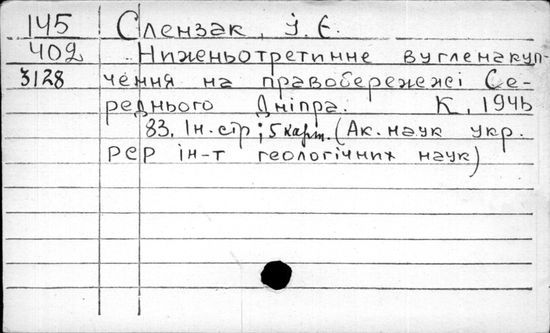 145 Слензак, І. Є.
402 Нижньотретинне вугленакуп-
3128 чення на правобережжі Се-
реднього Дніпра. К, 1946
83, Ін. стр; 5 карт. (Ак. наук укр.
РСР ін-т геологічних наук)